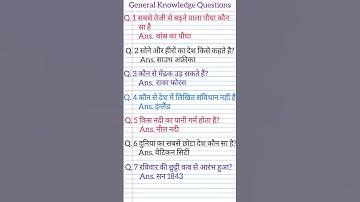 General Knowledge Questions
Q. 1 सबसे तेजी से बढ़ने वाला पौधा कौन
सा है
Ans. बांस का पौधा
Q. 2 सोने और हीरों का देश किसे कहते है?
Ans. साउथ अफ्रीका
Q. 3 कौन से मेंढक उड़ सकते हैं?
Ans. राका फोरस
Q. 4 कौन से देश में लिखित संविधान नहीं है
Ans. इंग्लैंड
Q. 5 किस नदी का पानी गर्म होता है?
Ans. नील नदी
Q. 6 दुनिया का सबसे छोटा देश कौन सा है?
Ans. वेटिकन सिटी
Q. 7 रविवार की छुट्टी कब से आरंभ हुआ?
Ans. सन 1843